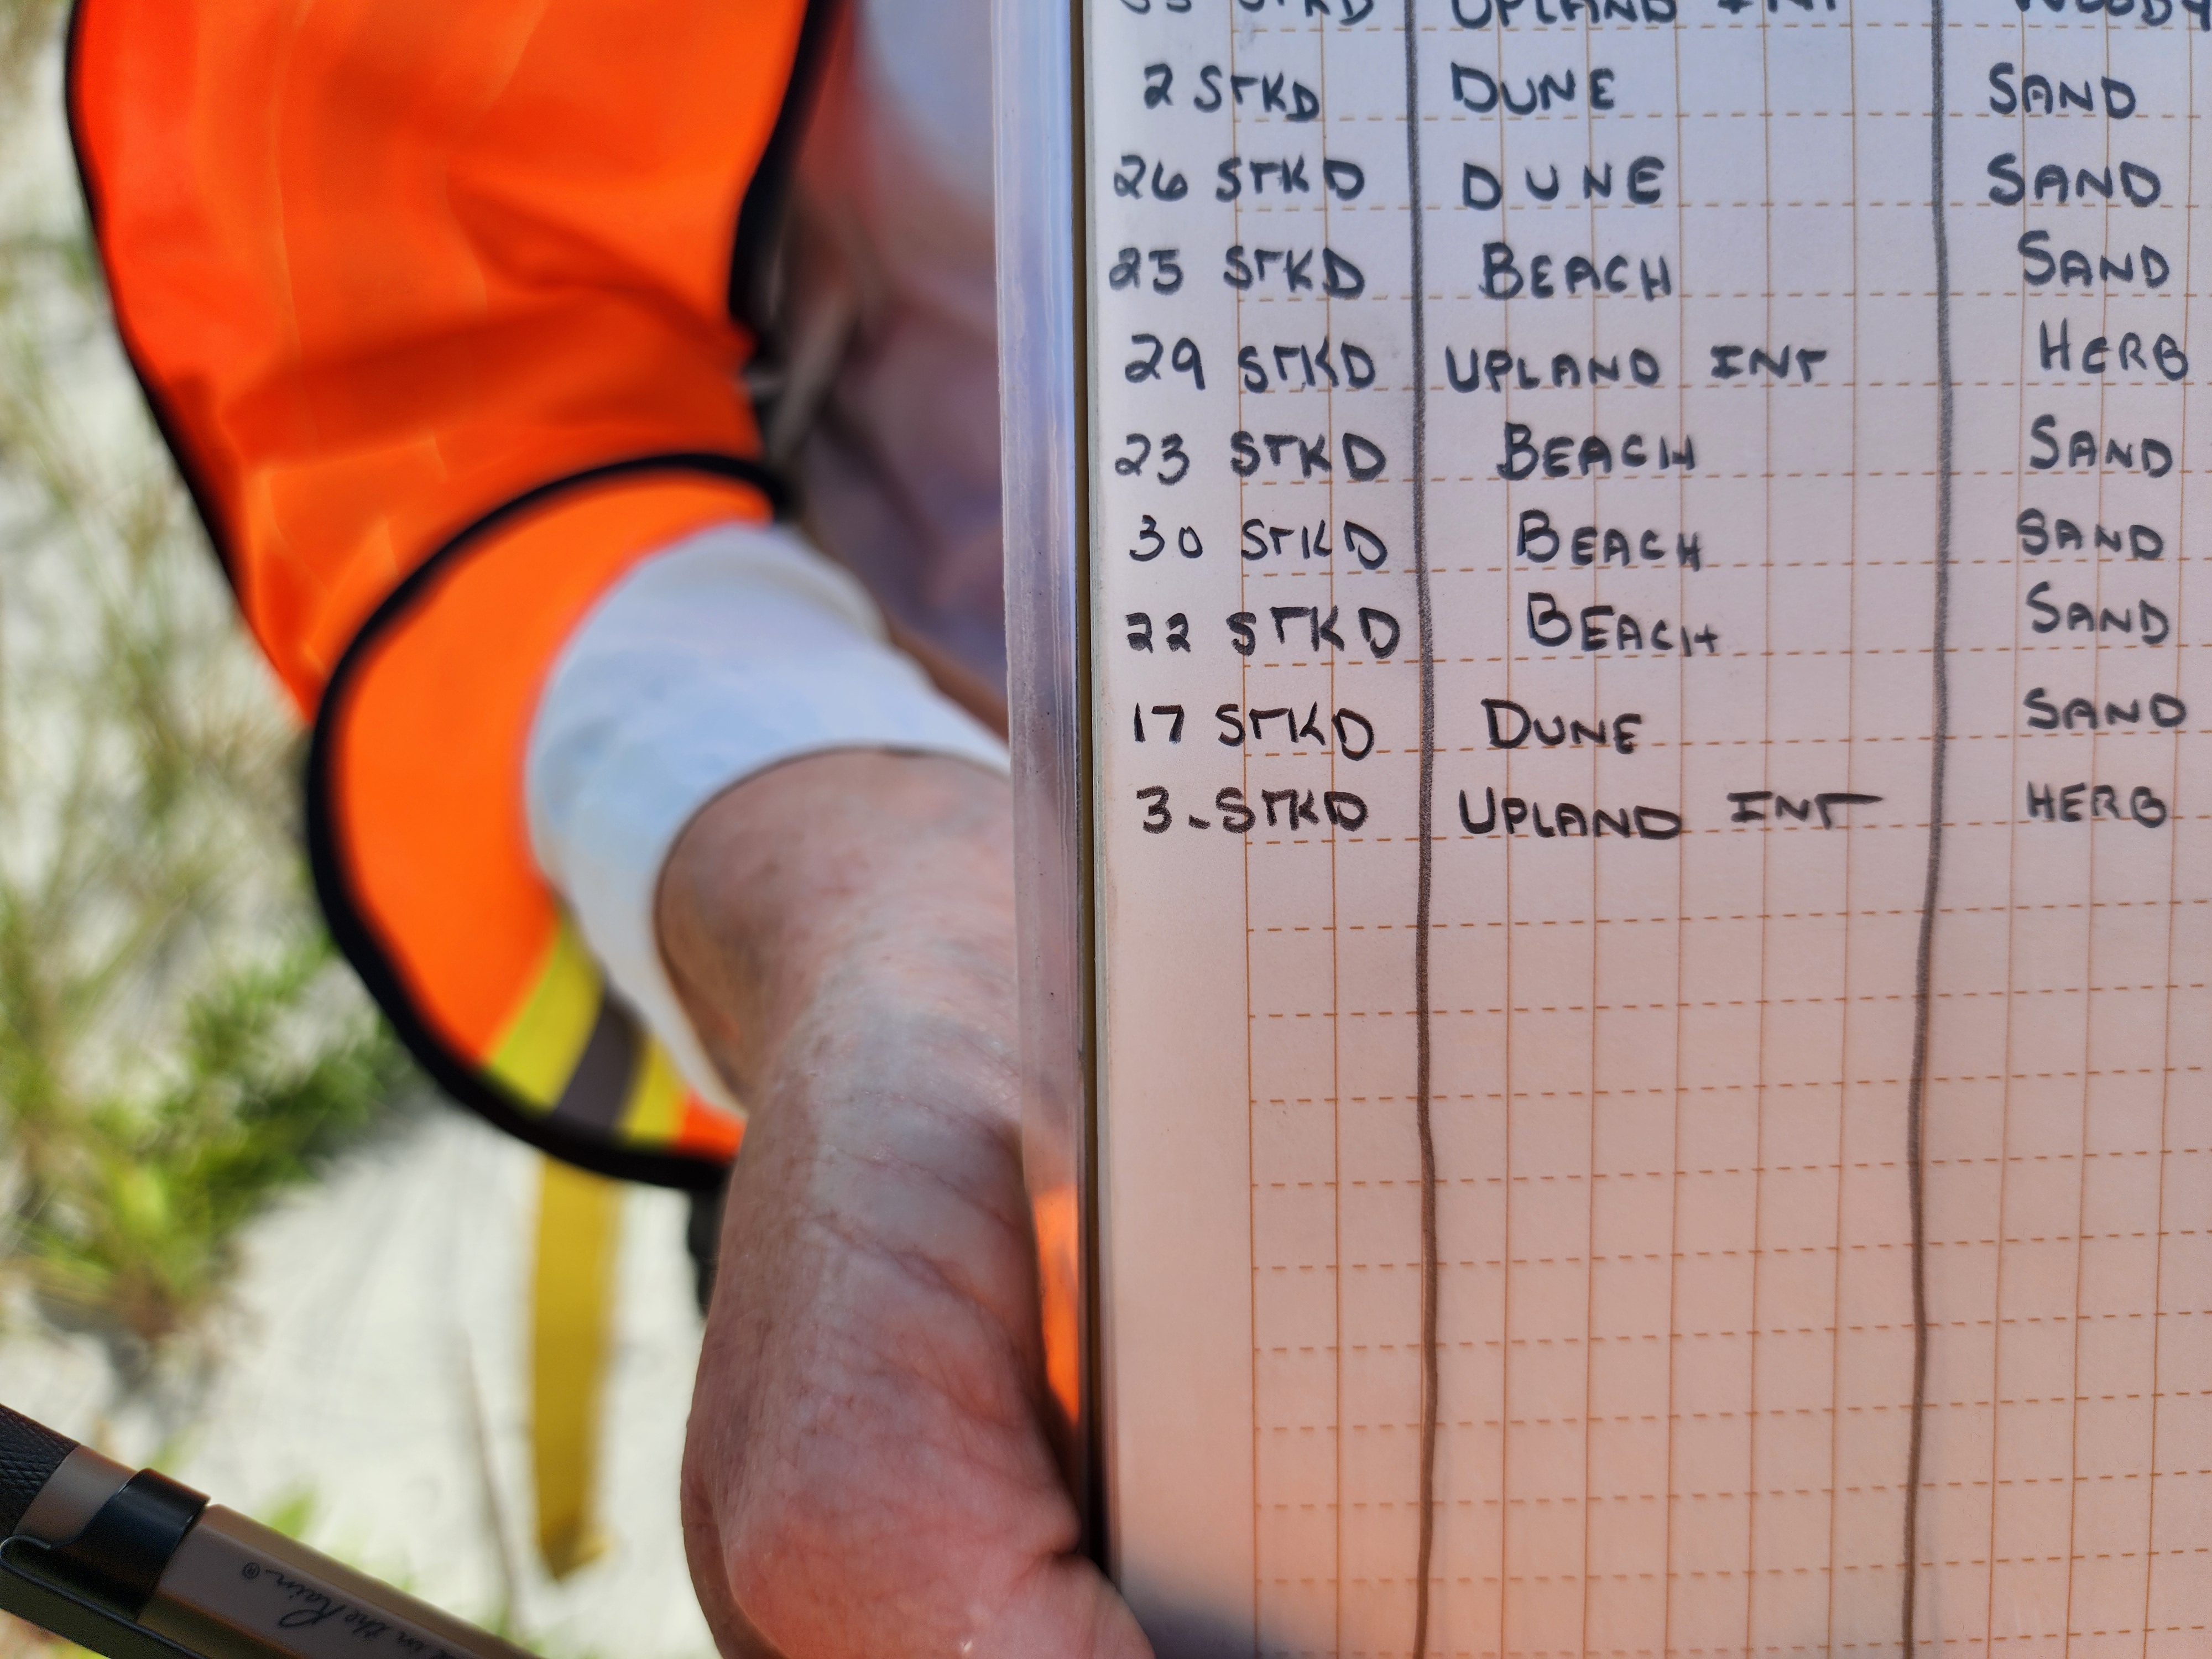 STKD UPLAND INT WOODY
2 STKD DUNE SAND
26 STKD DUNE SAND
25 STKD BEACH SAND
29 STKD UPLAND INT HERB
23 STKD BEACH SAND
30 STKD BEACH SAND
22 STKD BEACH SAND
17 STKD DUNE SAND
3. STKD UPLAND INT HERB
in the Rain®